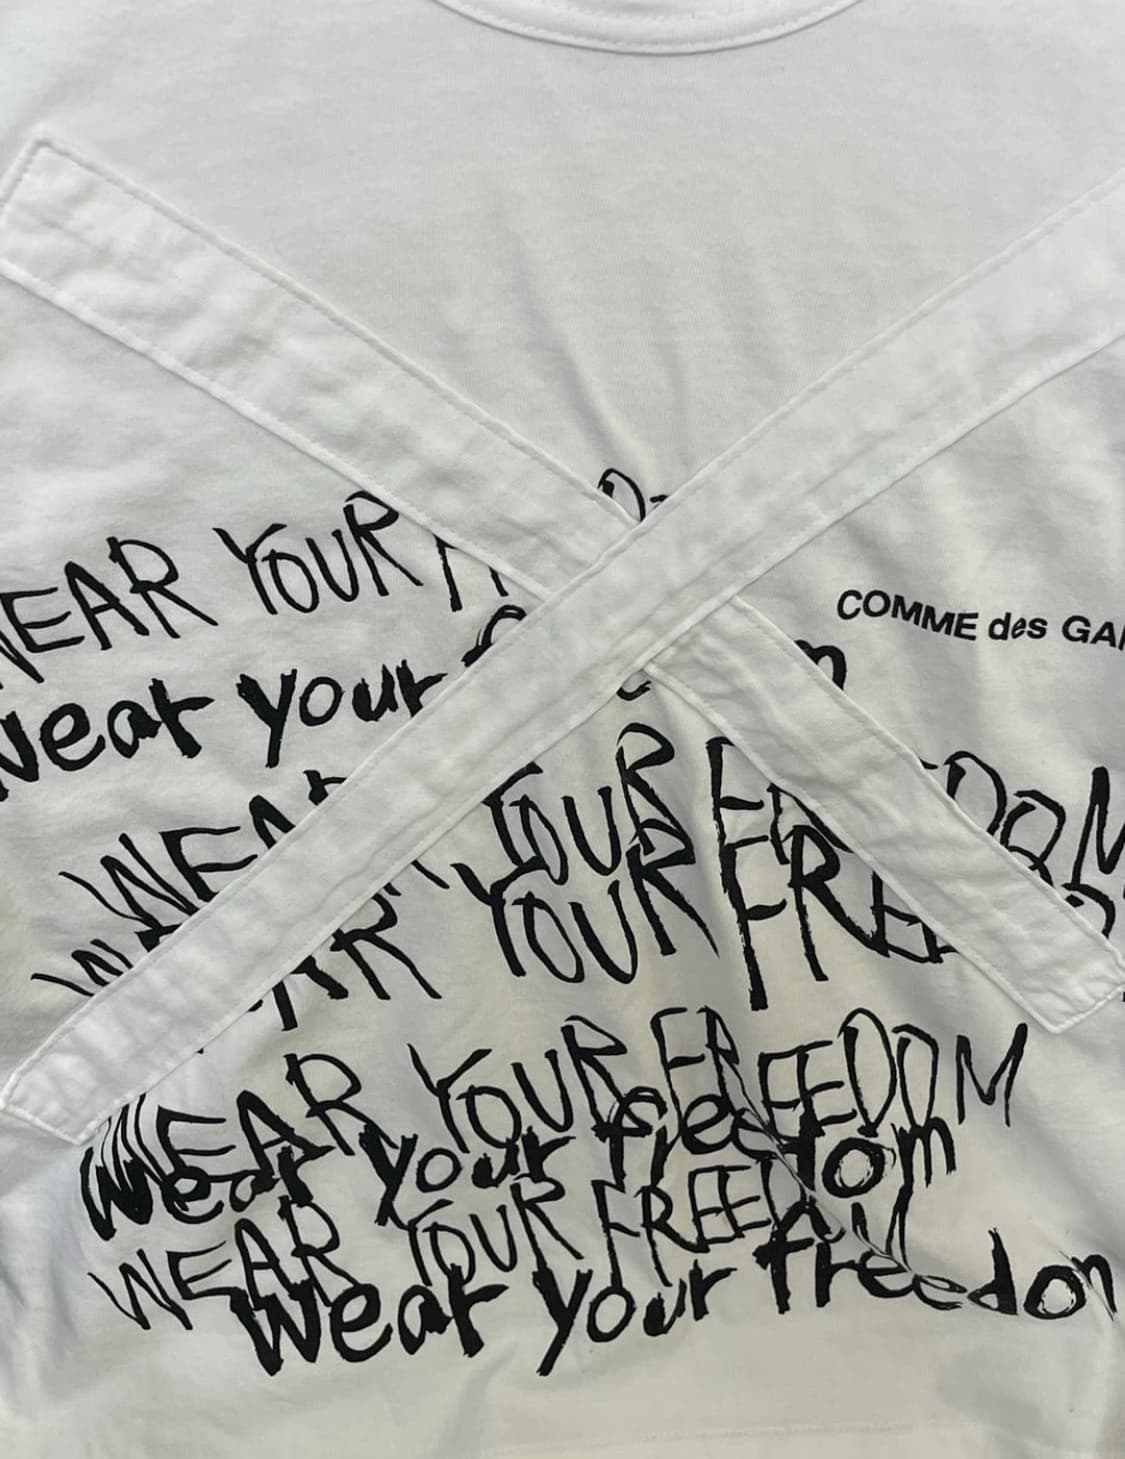 WEAR YOUR
COMME des GA
wear your
WEA YOUR
YOUR FRE
WEAR YOUR FREEDOM
wear your freedom
WEAR YOUR FREEDOM
wear your freedom